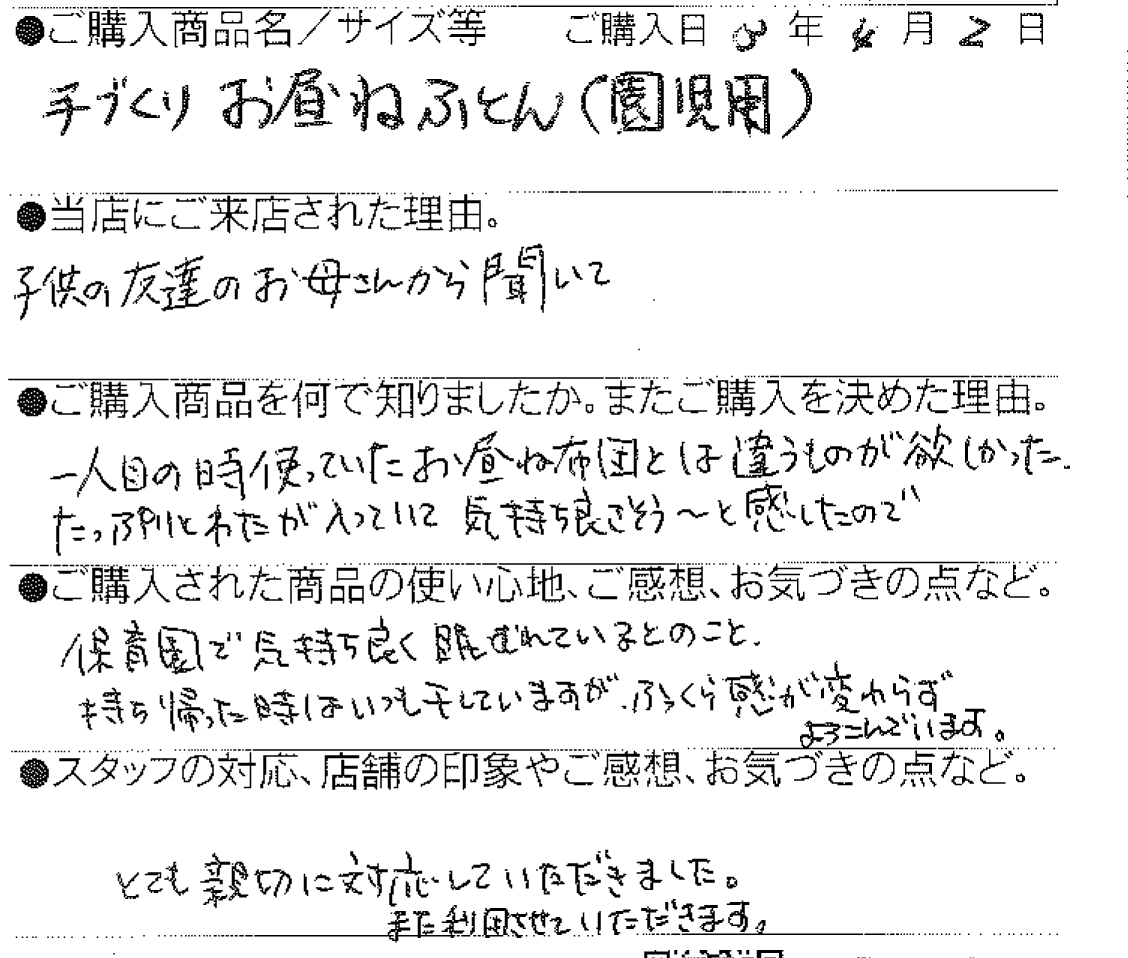 ●ご購入商品名/サイズ等 ご購入日 年 4月2日
手づくり お昼ねふとん(園児用)
●当店にご来店された理由。
子供の友達のお母さんから聞いて
●ご購入商品を何で知りましたか。またご購入を決めた理由。
一人目の時使っていたお昼ね布団とは違うものが欲しかった。
たっぷりとわたが入っていて 気持ち良さそう〜と感じたので
●ご購入された商品の使い心地、ご感想、お気づきの点など。
保育園で気持ち良く眠むれているとのこと。
持ち帰った時はいつも干していますが、ふっくら感が変わらず
よろこんでいます。
●スタッフの対応、店舗の印象やご感想、お気づきの点など。
とても親切に対応していただきました。
また利用させていただきます。